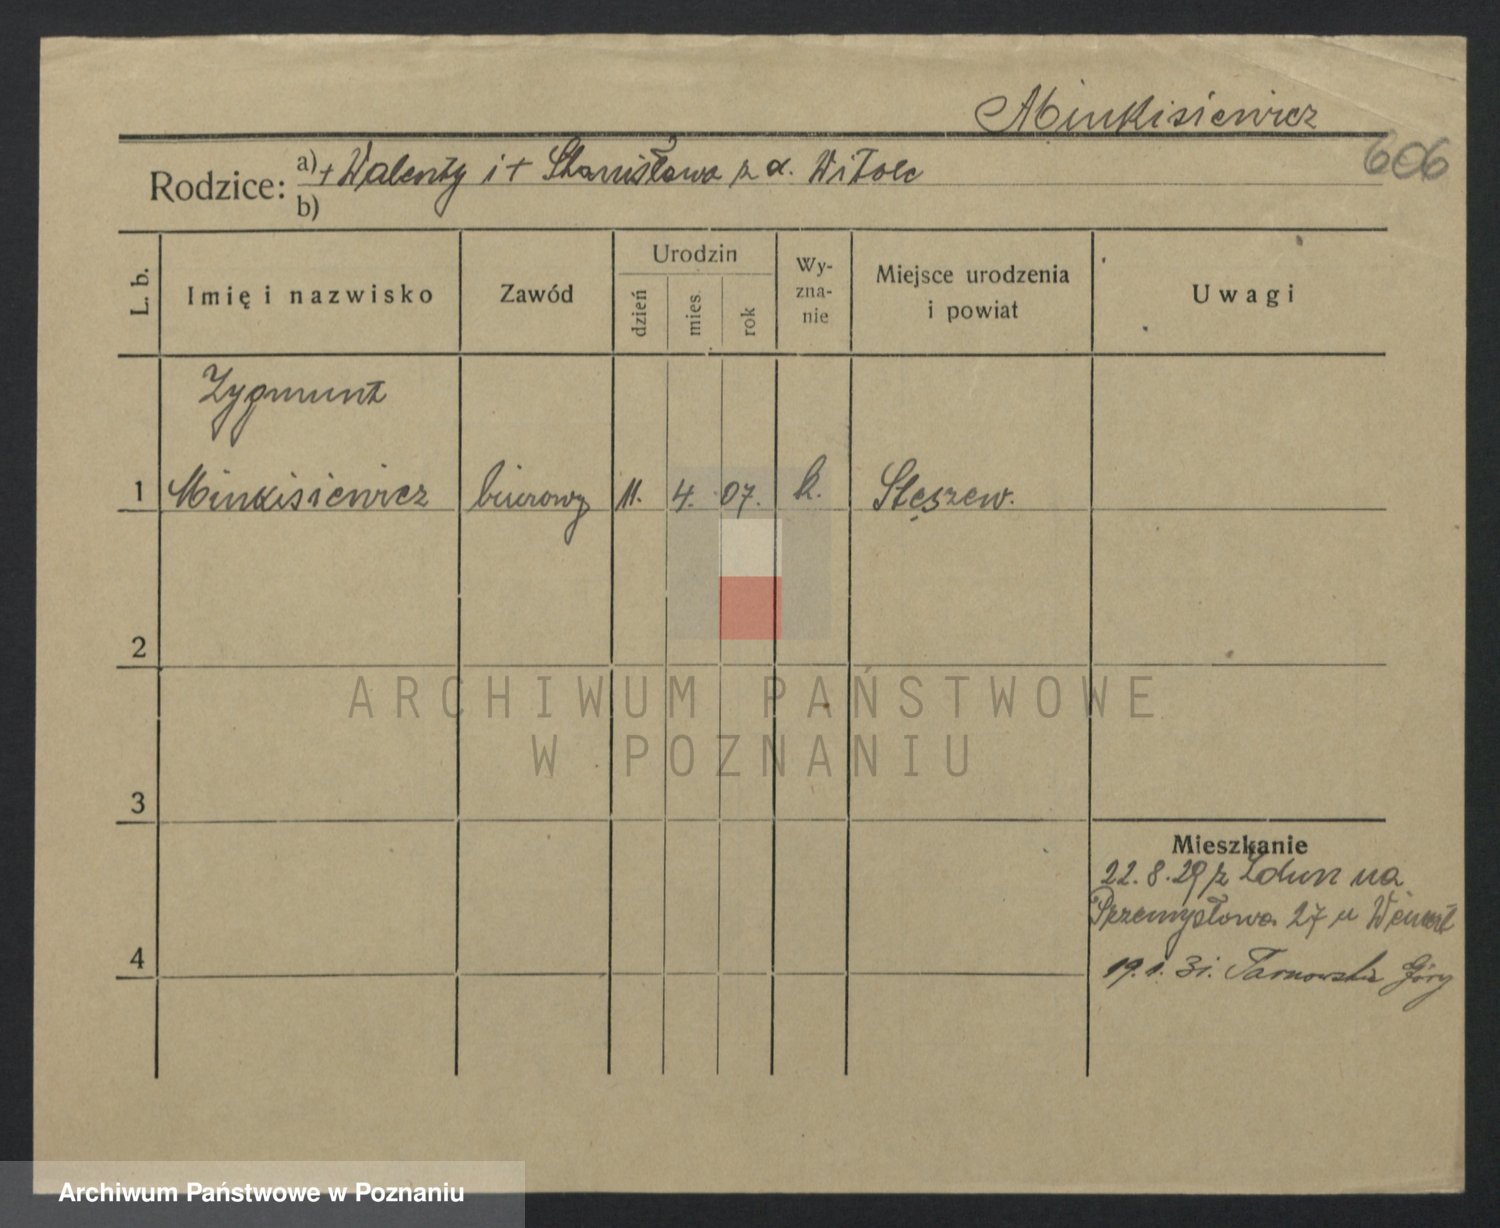 Minkisiewicz
606
Rodzice: a) + Walenty i + Stanisława z d.
b)
L. b.
Imię i nazwisko
Zawód
Urodzin
dzień
mies.
rok
Wy-
zna-
nie
Miejsce urodzenia
i powiat
Uwagi
Zygmunt
1 Minkisiewicz biurowy 11. 4. 07. k. Stęszew.
2
ARCHIWUM PAŃSTWOWE
W POZNANIU
3
Mieszkanie
22.8.29 z Zdun na
Przemysłowa 27 u
4
19.1.31. Tarnowskie Góry
Archiwum Państwowe w Poznaniu